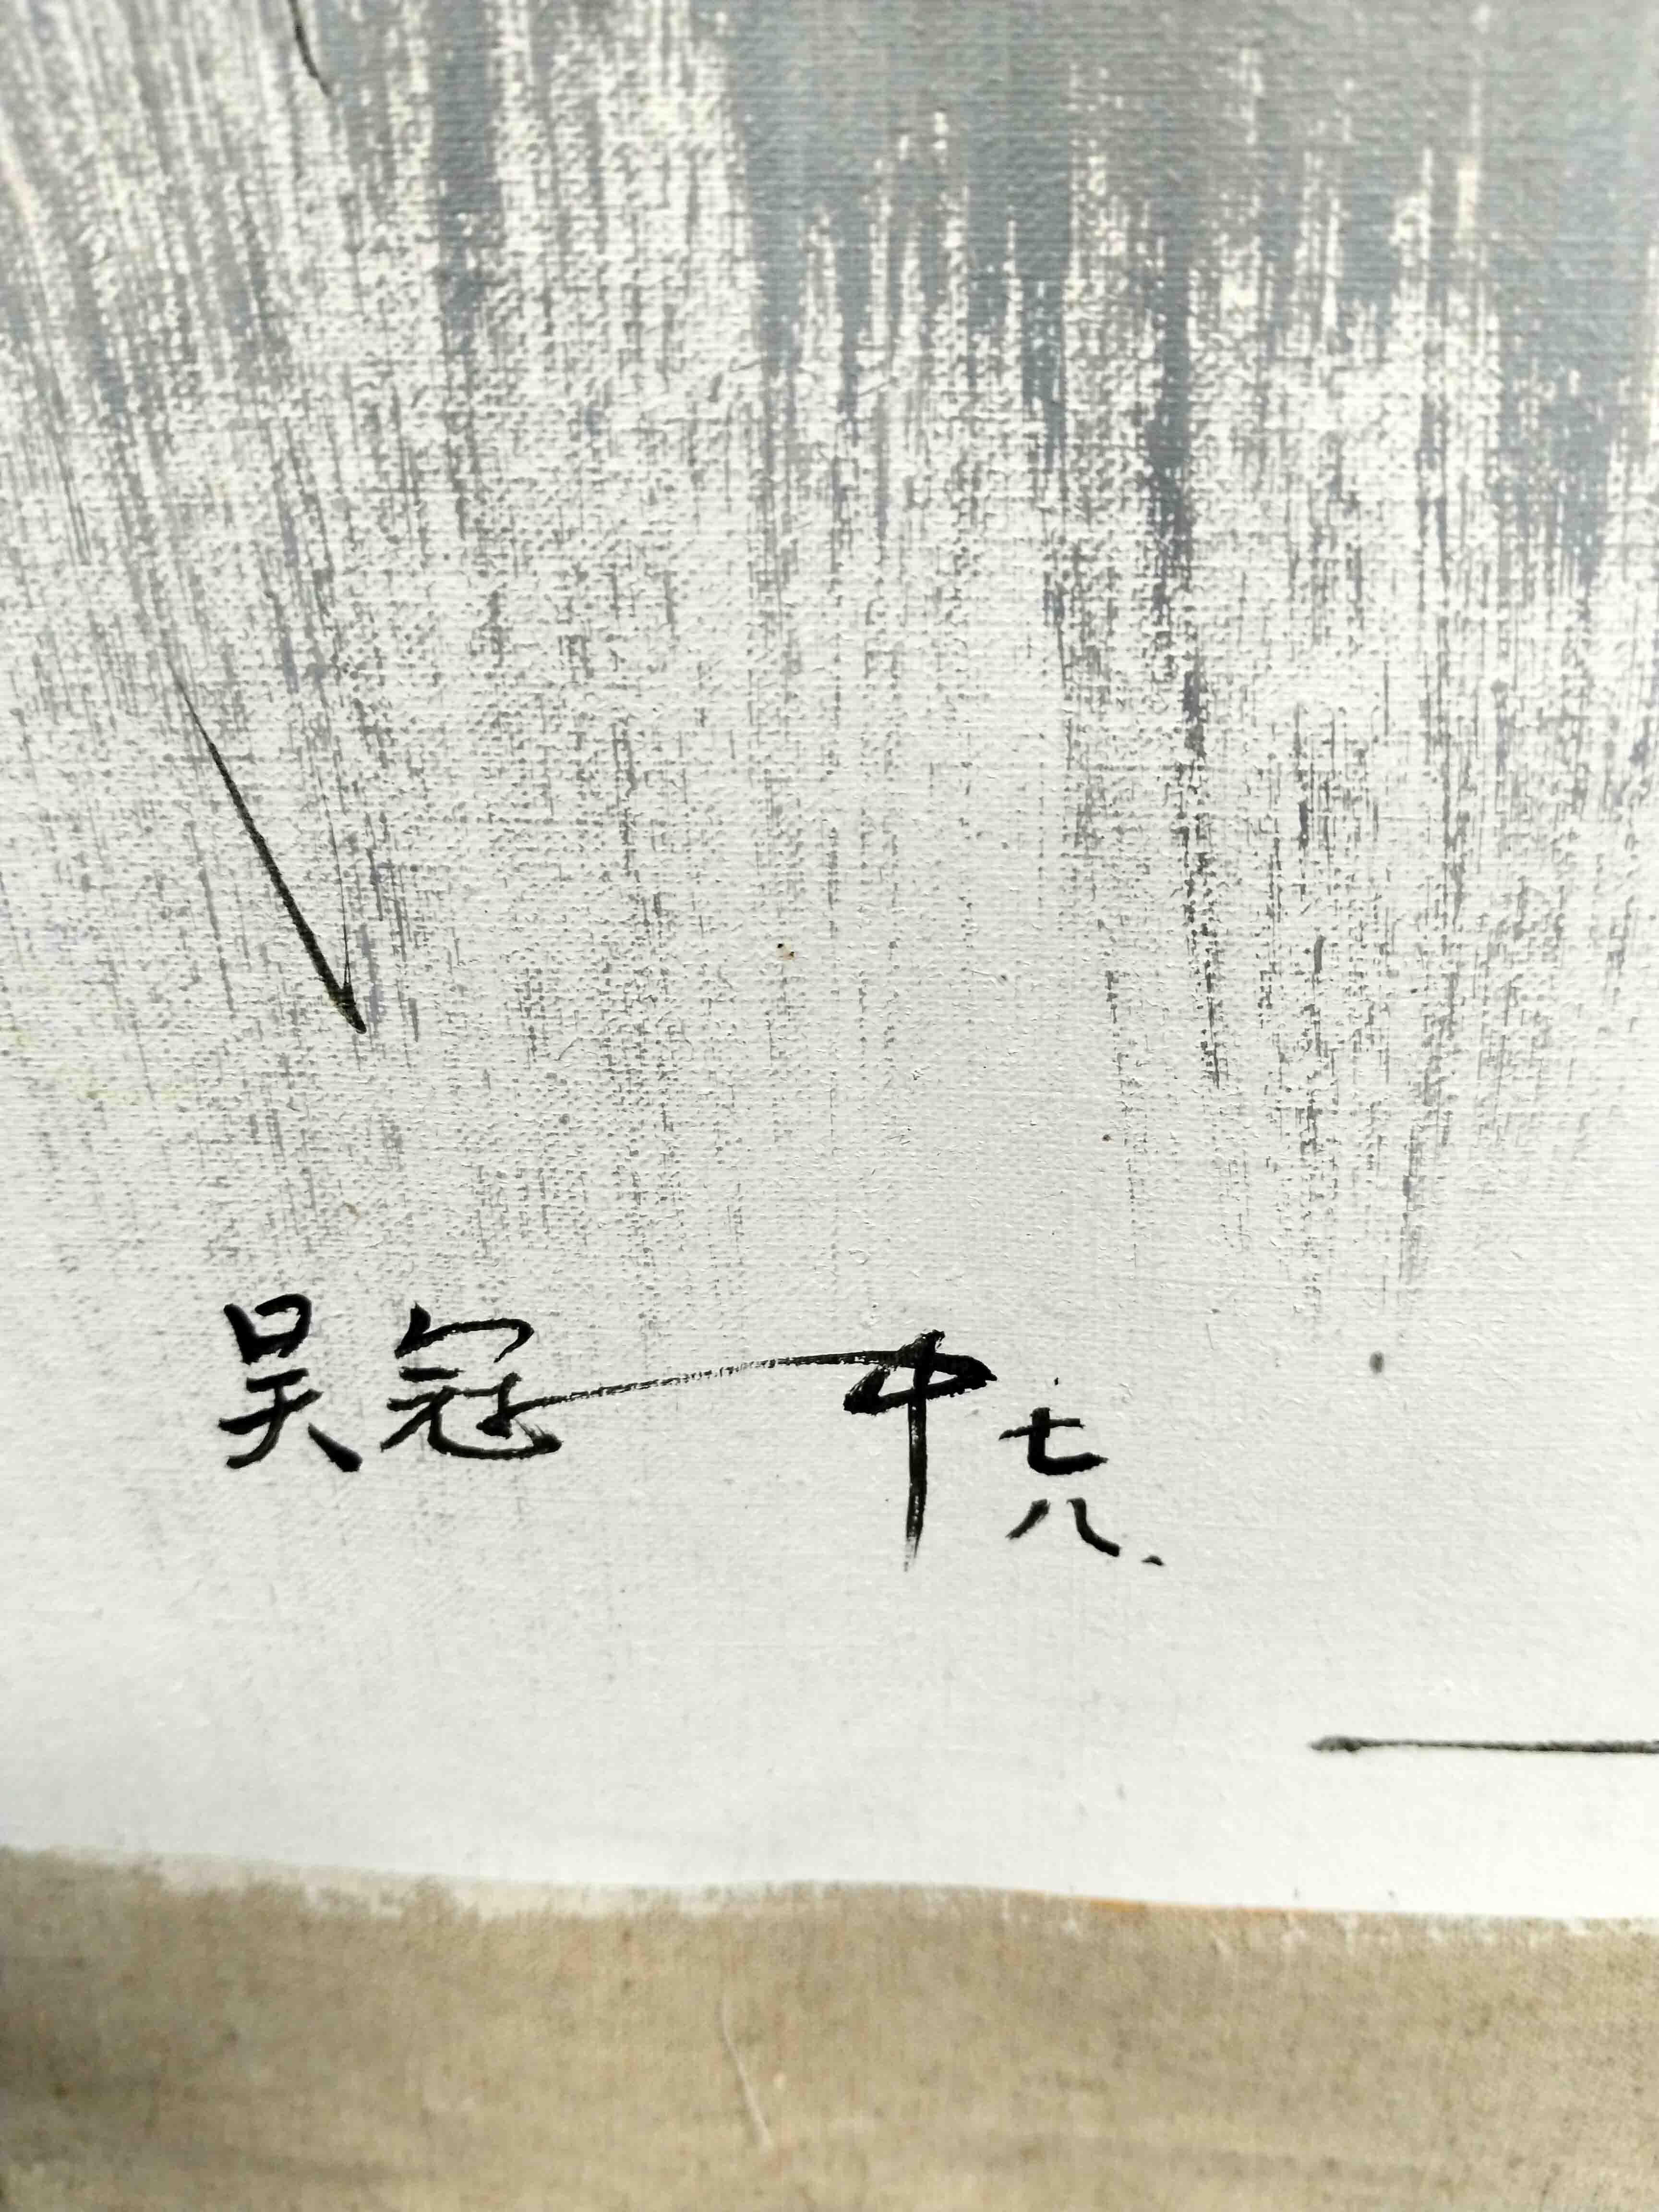 吴冠中 七八.